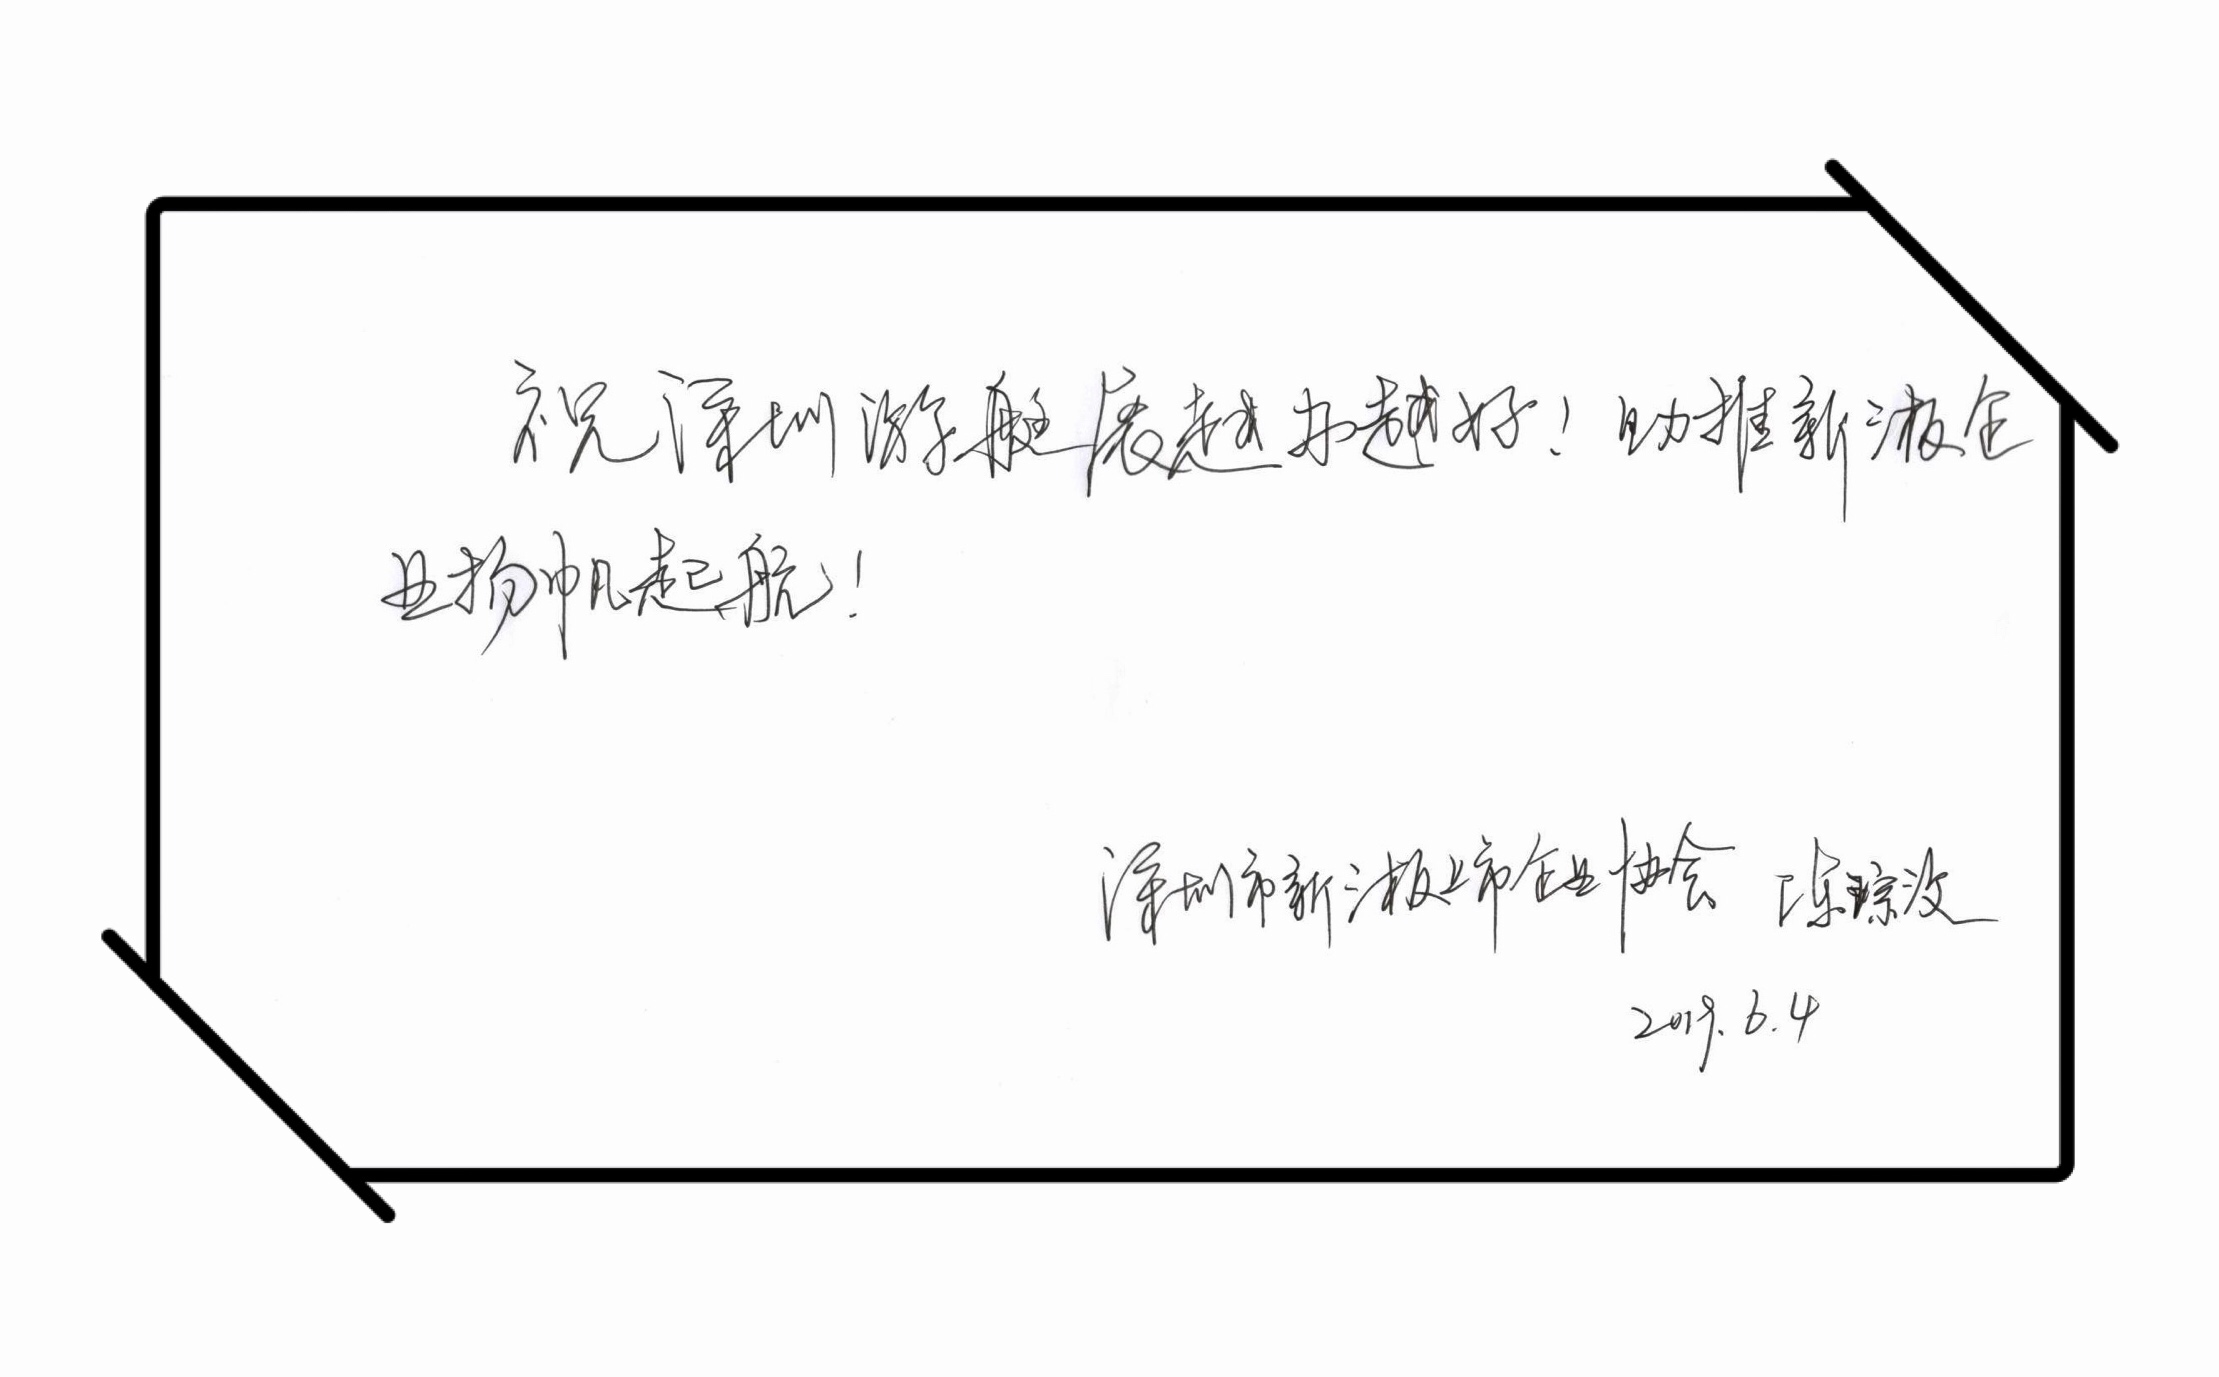 祝深圳游艇展越办越好！助推新三板企
业扬帆起航！
深圳市新三板上市企业协会 陈琮波
2019.6.4